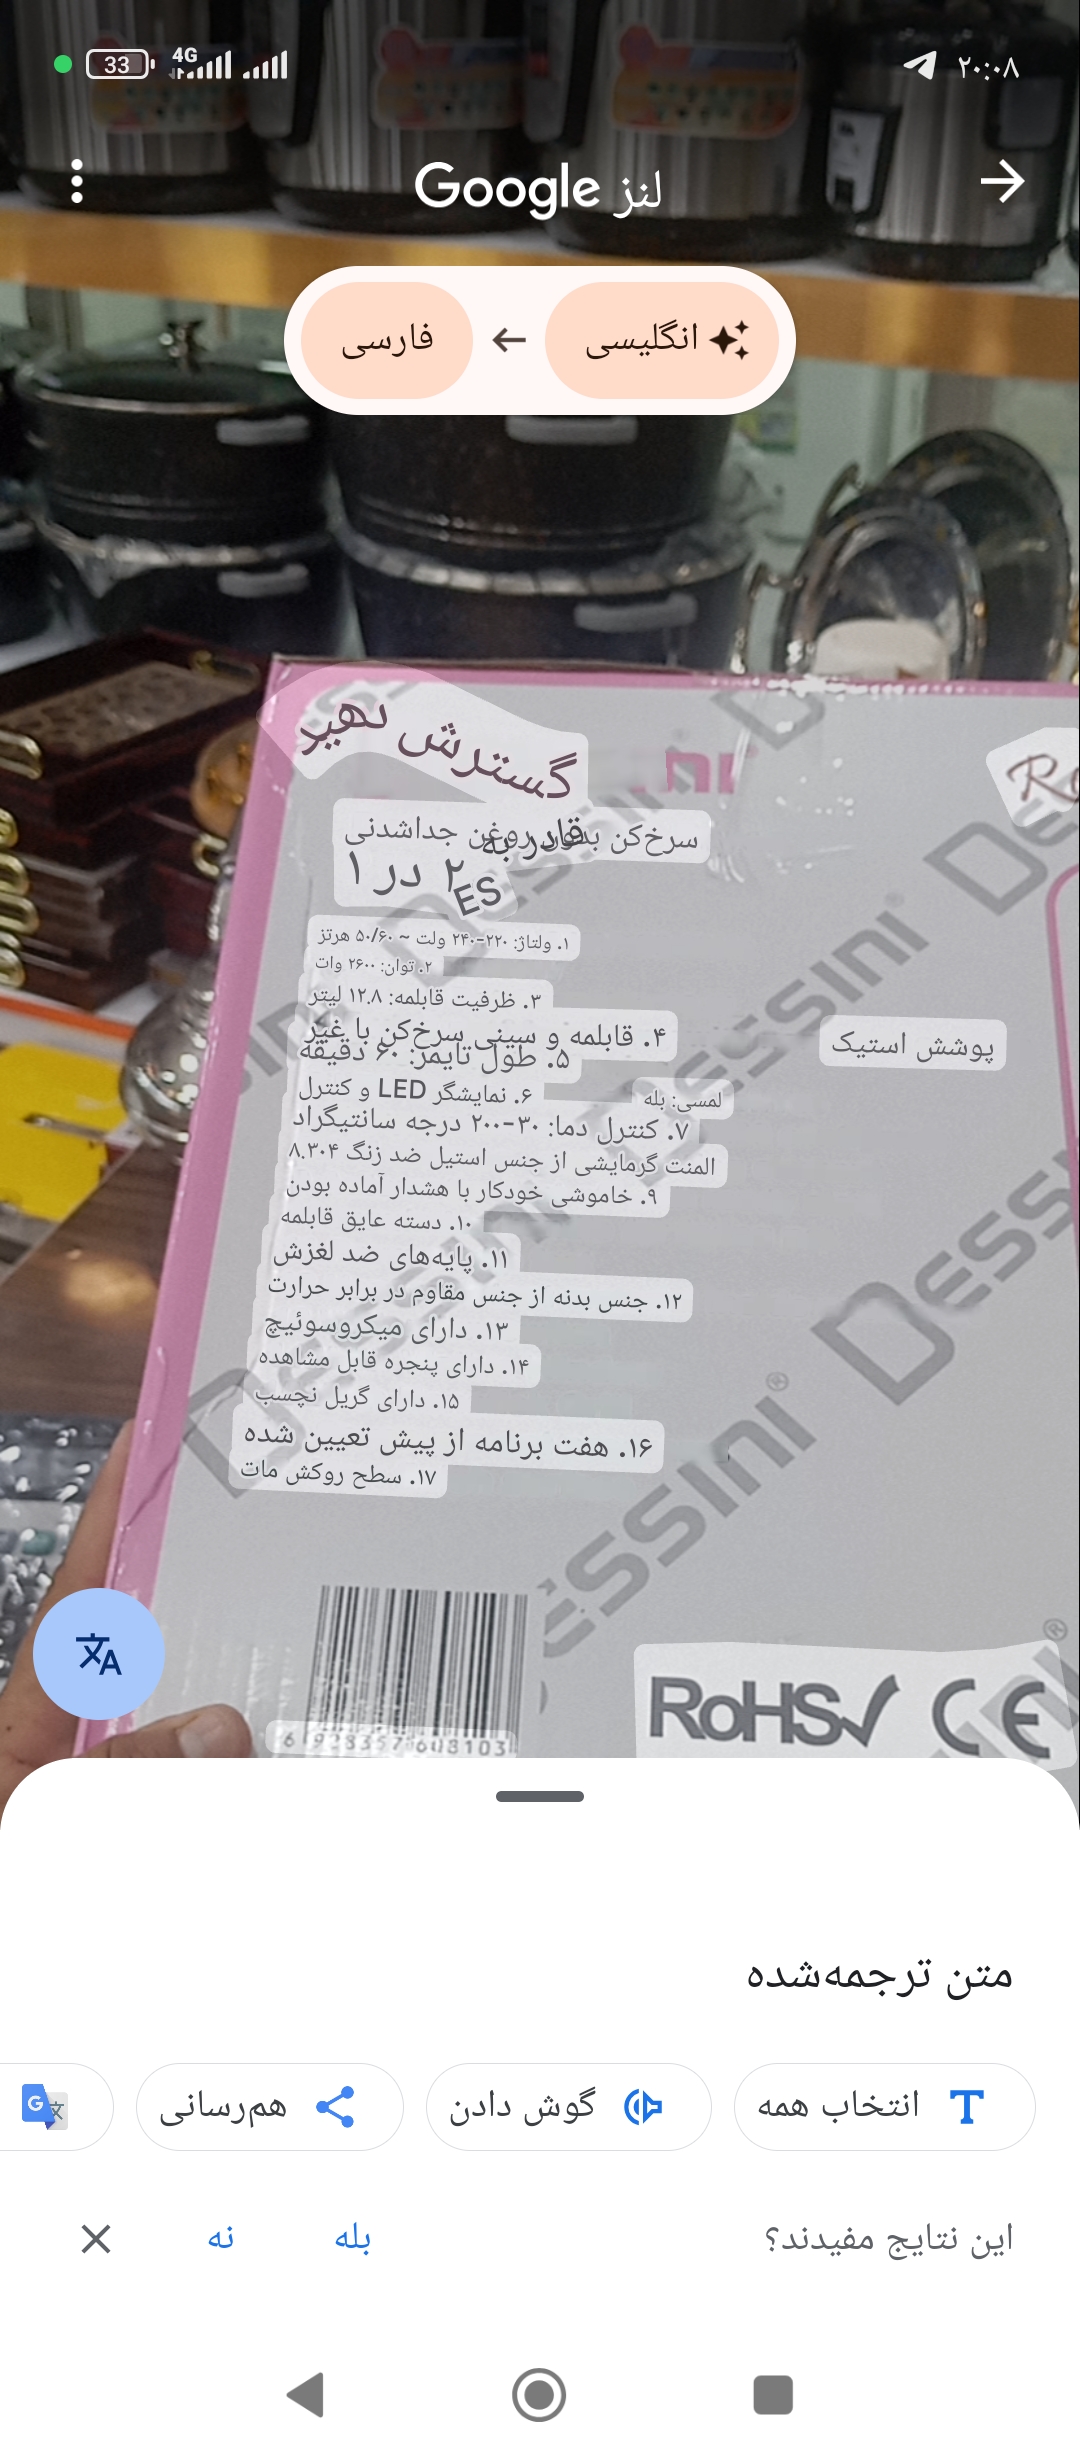 33 4G ۲۰:۰۸
Google لنز
انگلیسی ← فارسی
گسترش
سرخ‌کن بدون روغن جداشدنی
قادر به
۲ در ۱
ES
۱. ولتاژ: ۲۲۰-۲۴۰ ولت ~ ۵۰/۶۰ هرتز
۲. توان: ۲۶۰۰ وات
۳. ظرفیت قابلمه: ۱۲.۸ لیتر
۴. قابلمه و سینی سرخ‌کن با غیر
پوشش استیک
۵. طول تایمر: ۶۰ دقیقه
۶. نمایشگر LED و کنترل
لمسی: بله
۷. کنترل دما: ۳۰-۲۰۰ درجه سانتیگراد
المنت گرمایشی از جنس استیل ضد زنگ ۸.۳۰۴
۹. خاموشی خودکار با هشدار آماده بودن
۱۰. دسته عایق قابلمه
۱۱. پایه‌های ضد لغزش
۱۲. جنس بدنه از جنس مقاوم در برابر حرارت
۱۳. دارای میکروسوئیچ
۱۴. دارای پنجره قابل مشاهده
۱۵. دارای گریل نچسب
۱۶. هفت برنامه از پیش تعیین شده
۱۷. سطح روکش مات
DESSINI
DESSINI
DESSINI
RoHS CE
متن ترجمه‌شده
انتخاب همه
گوش دادن
هم‌رسانی
این نتایج مفیدند؟
بله
نه